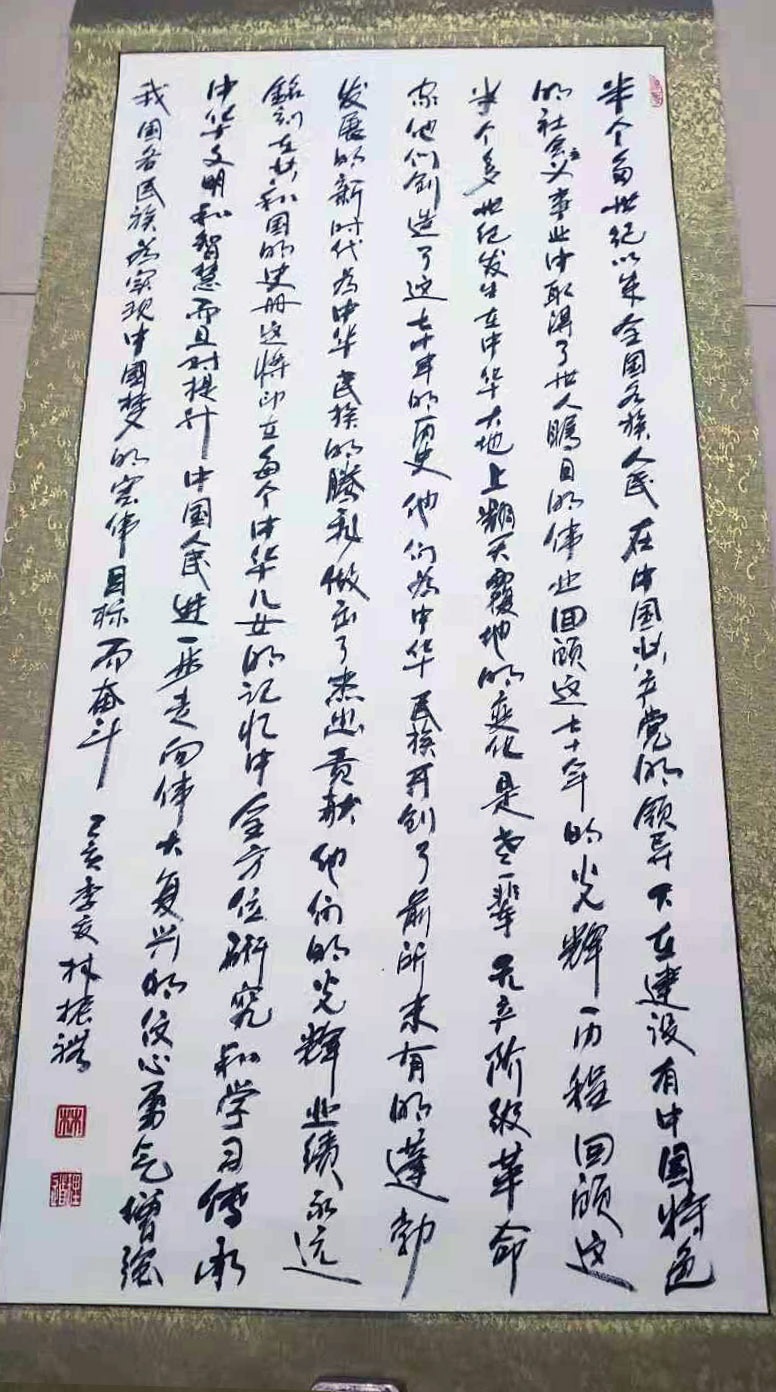 半个多世纪以来全国各族人民在中国共产党的领导下在建设有中国特色
的社会主义事业中取得了世人瞩目的伟业回顾这七十年的光辉历程回顾这
半个多世纪发生在中华大地上翻天覆地的变化是老一辈无产阶级革命
家他们创造了这七十年的历史他们为中华民族开创了前所未有的蓬勃
发展的新时代为中华民族的腾飞做出了杰出贡献他们的光辉业绩永远
铭刻在共和国的史册这将印在每个中华儿女的记忆中全方位研究和学习传承
中华文明和智慧而且对提升中国人民进一步走向伟大复兴的信心勇气增强
我国各民族为实现中國梦的宏伟目标而奋斗 己亥季夏林振
林